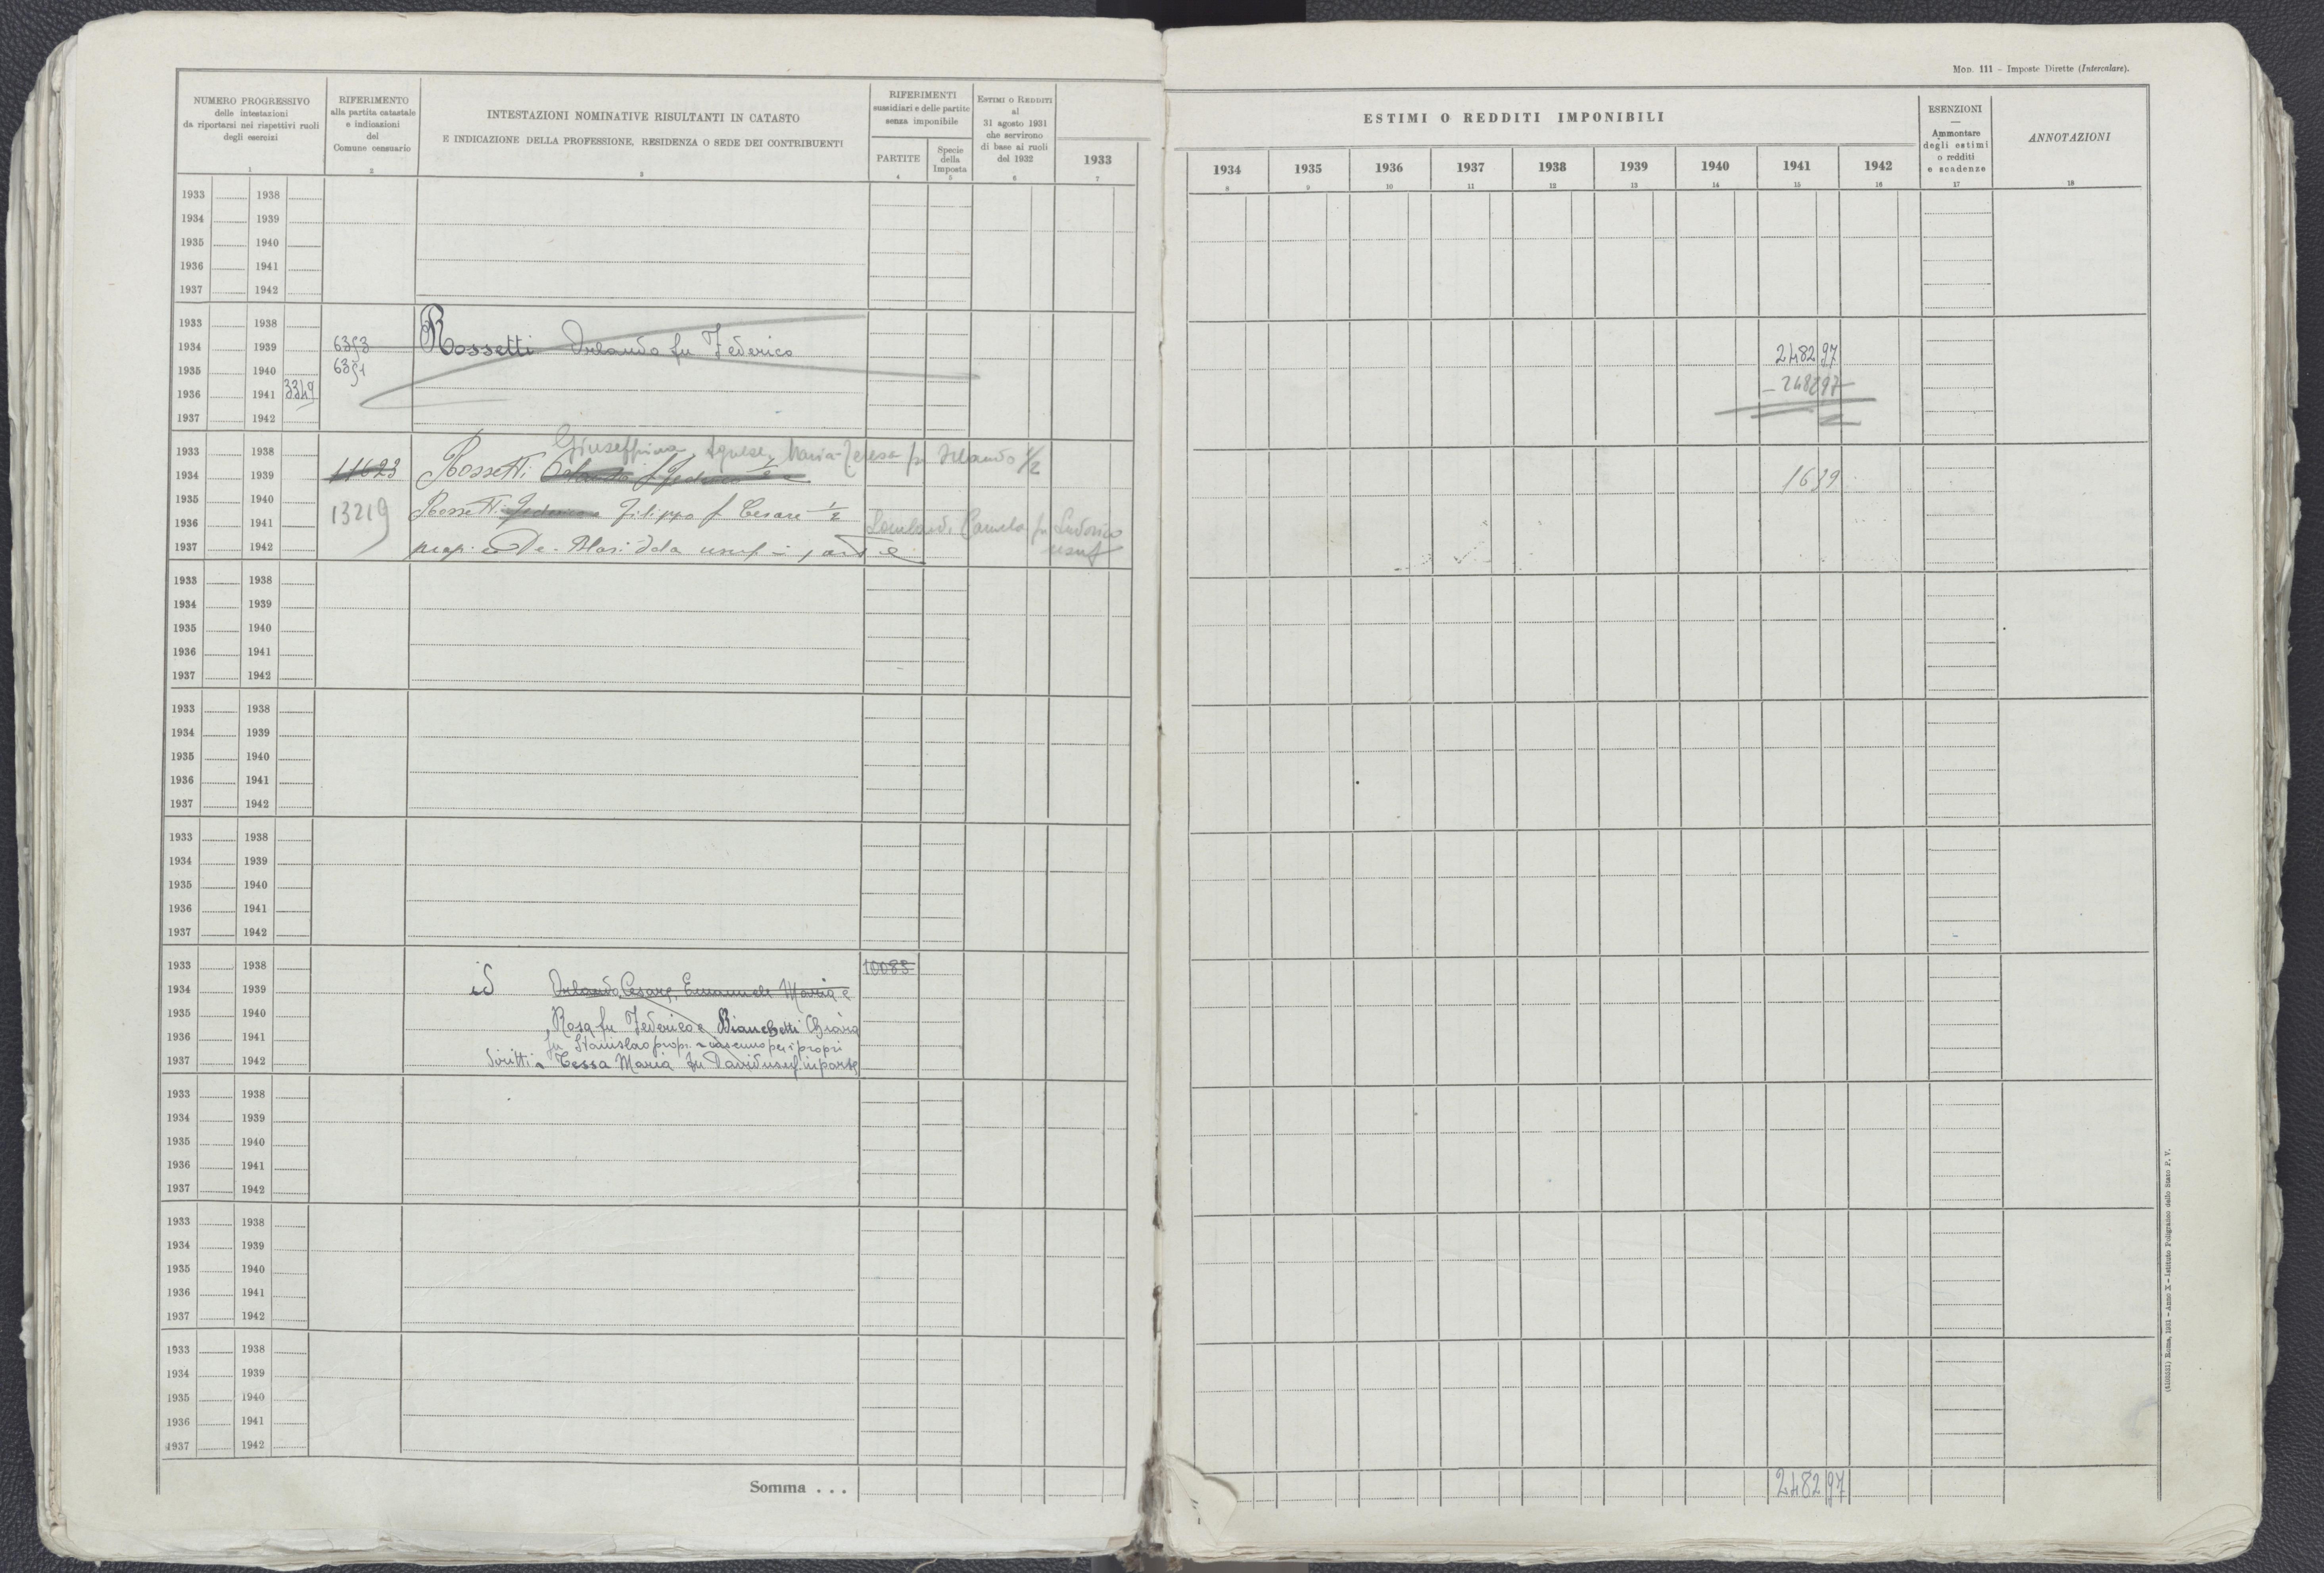 Mod. 111 - Imposte Dirette (Intercalare).
NUMERO PROGRESSIVO
delle intestazioni
da riportarsi nei rispettivi ruoli
degli esercizi
1
RIFERIMENTO
alla partita catastale
e indicazioni
del
Comune censuario
2
INTESTAZIONI NOMINATIVE RISULTANTI IN CATASTO
E INDICAZIONE DELLA PROFESSIONE, RESIDENZA O SEDE DEI CONTRIBUENTI
3
RIFERIMENTI
sussidiari e delle partite
senza imponibile
PARTITE
4
Specie
della
Imposta
5
Estimi o Redditi
al
31 agosto 1931
che servirono
di base ai ruoli
del 1932
6
1933
7
ESTIMI O REDDITI IMPONIBILI
1934 1935 1936 1937 1938 1939 1940 1941 1942
8 9 10 11 12 13 14 15 16
ESENZIONI
—
Ammontare
degli estimi
o redditi
e scadenze
17
ANNOTAZIONI
18
1933 1938
1934 1939
1935 1940
1936 1941
1937 1942
1933 1938
1934 1939 Rossetti Orlando fu Federico 248297
1935 1940
1936 1941 3349 - 248297
1937 1942
1933 1938 Giuseppina Agnese, Maria-Teresa fu Orlando 1/2
1934 1939 11623 Rossetti 1639
1935 1940
1936 1941 13219 Rossetti Filippo f Cesare 1/2 Lombardi Pamela fu Ludovico
1937 1942 usuf
1933 1938
1934 1939
1935 1940
1936 1941
1937 1942
1933 1938
1934 1939
1935 1940
1936 1941
1937 1942
1933 1938
1934 1939
1935 1940
1936 1941
1937 1942
1933 1938 10085
1934 1939 id Orlando, Cesare, Emanuele Maria e
1935 1940 Rosa fu Federico e Bianchetti Chiara
1936 1941 fu Stanislao propr. ciascuno per i propri
1937 1942 diritti e Tessa Maria fu David usuf. in parte
1933 1938
1934 1939
1935 1940
1936 1941
1937 1942
1933 1938
1934 1939
1935 1940
1936 1941
1937 1942
1933 1938
1934 1939
1935 1940
1936 1941
1937 1942
Somma . . . 248297
Roma, 1931 - Anno X - Istituto Poligrafico dello Stato P. V.